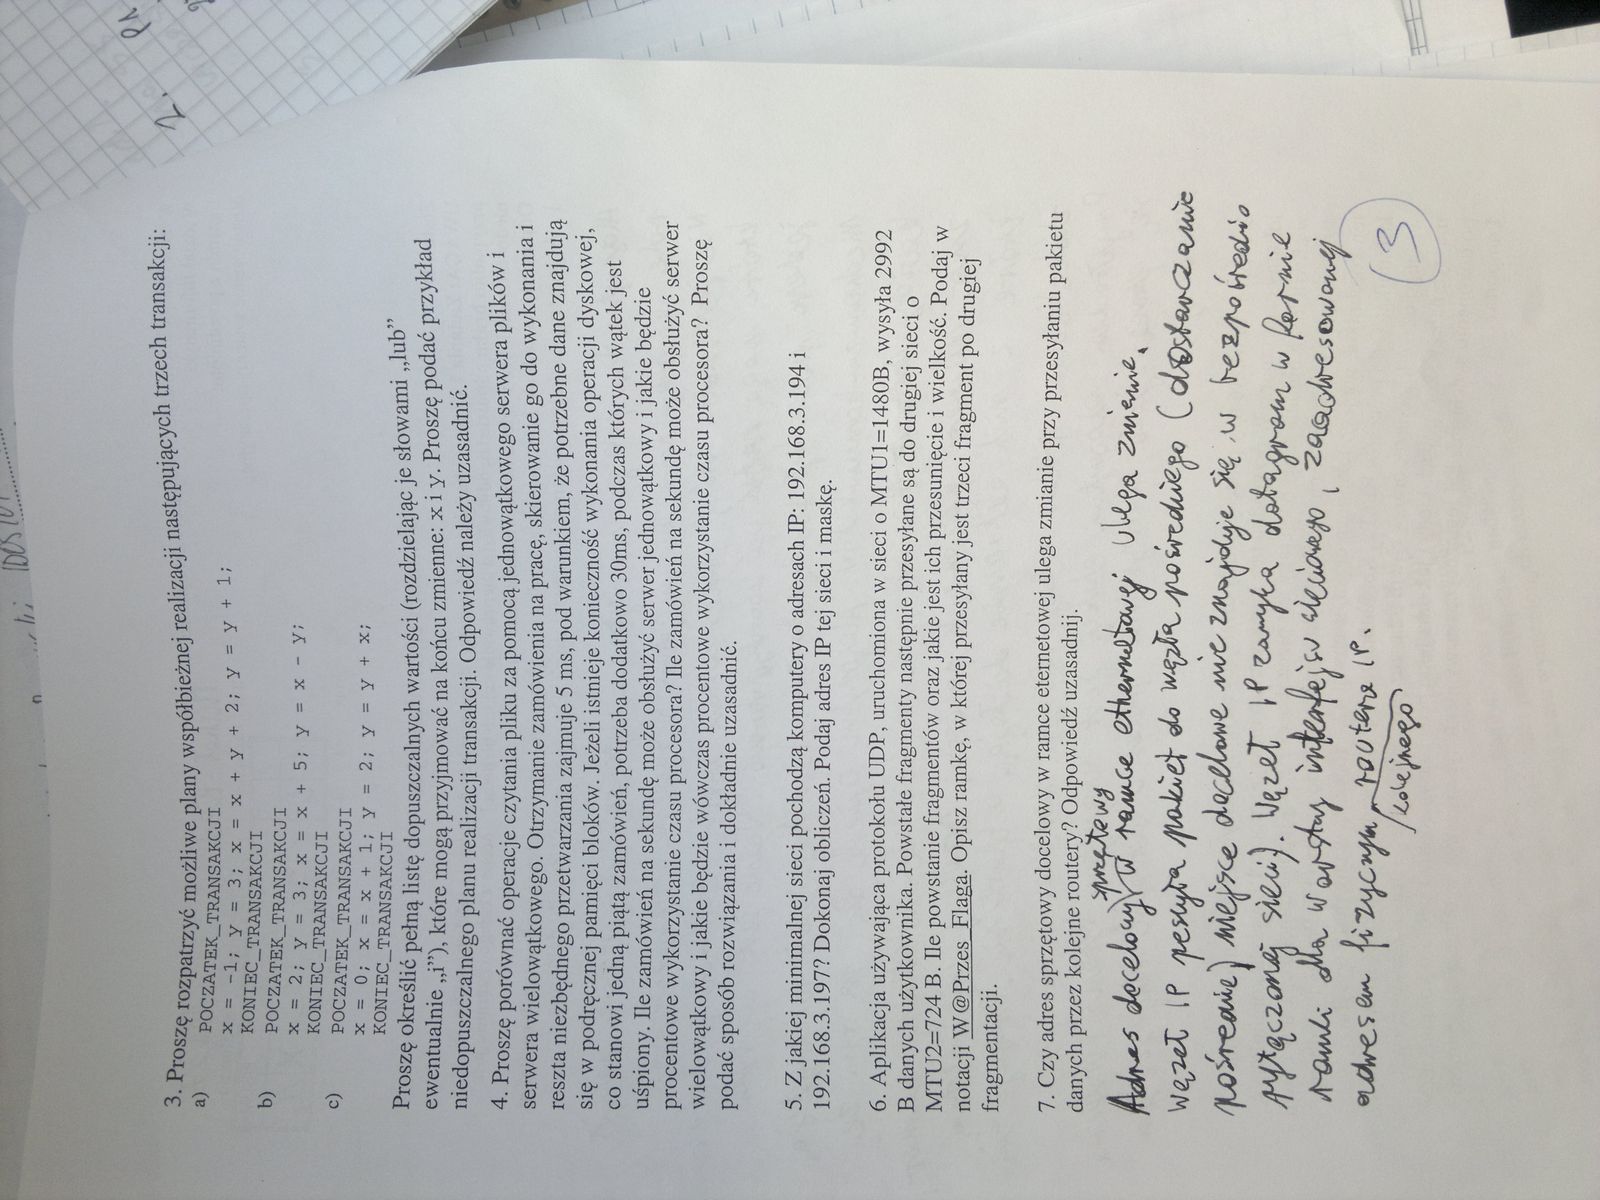 3. Proszę rozpatrzyć możliwe plany współbieżnej realizacji następujących trzech transakcji:
a) POCZATEK_TRANSAKCJI
x = -1; y = 3; x = x + y + 2; y = y + 1;
KONIEC_TRANSAKCJI
b) POCZATEK_TRANSAKCJI
x = 2; y = 3; x = x + 5; y = x - y;
KONIEC_TRANSAKCJI
c) POCZATEK_TRANSAKCJI
x = 0; x = x + 1; y = 2; y = y + x;
KONIEC_TRANSAKCJI
Proszę określić pełną listę dopuszczalnych wartości (rozdzielając je słowami „lub”
ewentualnie „i”), które mogą przyjmować na końcu zmienne: x i y. Proszę podać przykład
niedopuszczalnego planu realizacji transakcji. Odpowiedź należy uzasadnić.
4. Proszę porównać operacje czytania pliku za pomocą jednowątkowego serwera plików i
serwera wielowątkowego. Otrzymanie zamówienia na pracę, skierowanie go do wykonania i
reszta niezbędnego przetwarzania zajmuje 5 ms, pod warunkiem, że potrzebne dane znajdują
się w podręcznej pamięci bloków. Jeżeli istnieje konieczność wykonania operacji dyskowej,
co stanowi jedną piątą zamówień, potrzeba dodatkowo 30ms, podczas których wątek jest
uśpiony. Ile zamówień na sekundę może obsłużyć serwer jednowątkowy i jakie będzie
procentowe wykorzystanie czasu procesora? Ile zamówień na sekundę może obsłużyć serwer
wielowątkowy i jakie będzie wówczas procentowe wykorzystanie czasu procesora? Proszę
podać sposób rozwiązania i dokładnie uzasadnić.
5. Z jakiej minimalnej sieci pochodzą komputery o adresach IP: 192.168.3.194 i
192.168.3.197? Dokonaj obliczeń. Podaj adres IP tej sieci i maskę.
6. Aplikacja używająca protokołu UDP, uruchomiona w sieci o MTU1=1480B, wysyła 2992
B danych użytkownika. Powstałe fragmenty następnie przesyłane są do drugiej sieci o
MTU2=724 B. Ile powstanie fragmentów oraz jakie jest ich przesunięcie i wielkość. Podaj w
notacji W@Przes_Flaga. Opisz ramkę, w której przesyłany jest trzeci fragment po drugiej
fragmentacji.
7. Czy adres sprzętowy docelowy w ramce eternetowej ulega zmianie przy przesyłaniu pakietu
danych przez kolejne routery? Odpowiedź uzasadnij.
sprzętowy
Adres docelowy w ramce ethernetowej ulega zmianie.
Węzeł IP pesyła pakiet do węzła pośredniego (dostarczanie
pośrednie) miejsce docelowe nie znajduje się w bezpośrednio
pyłączonej sieci). Węzeł IP zamyka datagram w formie
ramki dla warstwy interfejsu sieciowego, zaadresowanej
adresem fizycznym routera IP.
kolejnego
3
2. P1